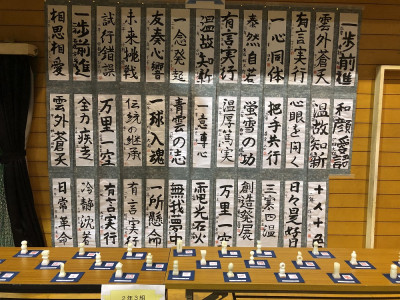 一歩前進
雲外蒼天
有言実行
一心同体
泰然自若
有言実行
温故知新
一念発起
友奏心響
未来挑戦
試行錯誤
一歩前進
相思相愛
和顔愛語
温故知新
心眼を開く
把手共行
蛍雪の功
温厚篤実
一意専心
青雲の志
一球入魂
伝統の継承
万里一空
全力疾走
雲外蒼天
十人十色
日々是好日
三寒四温
創造発展
万里一空
電光石火
無我夢中
一所懸命
有言実行
有言実行
冷静沈着
日常革命
2年3組